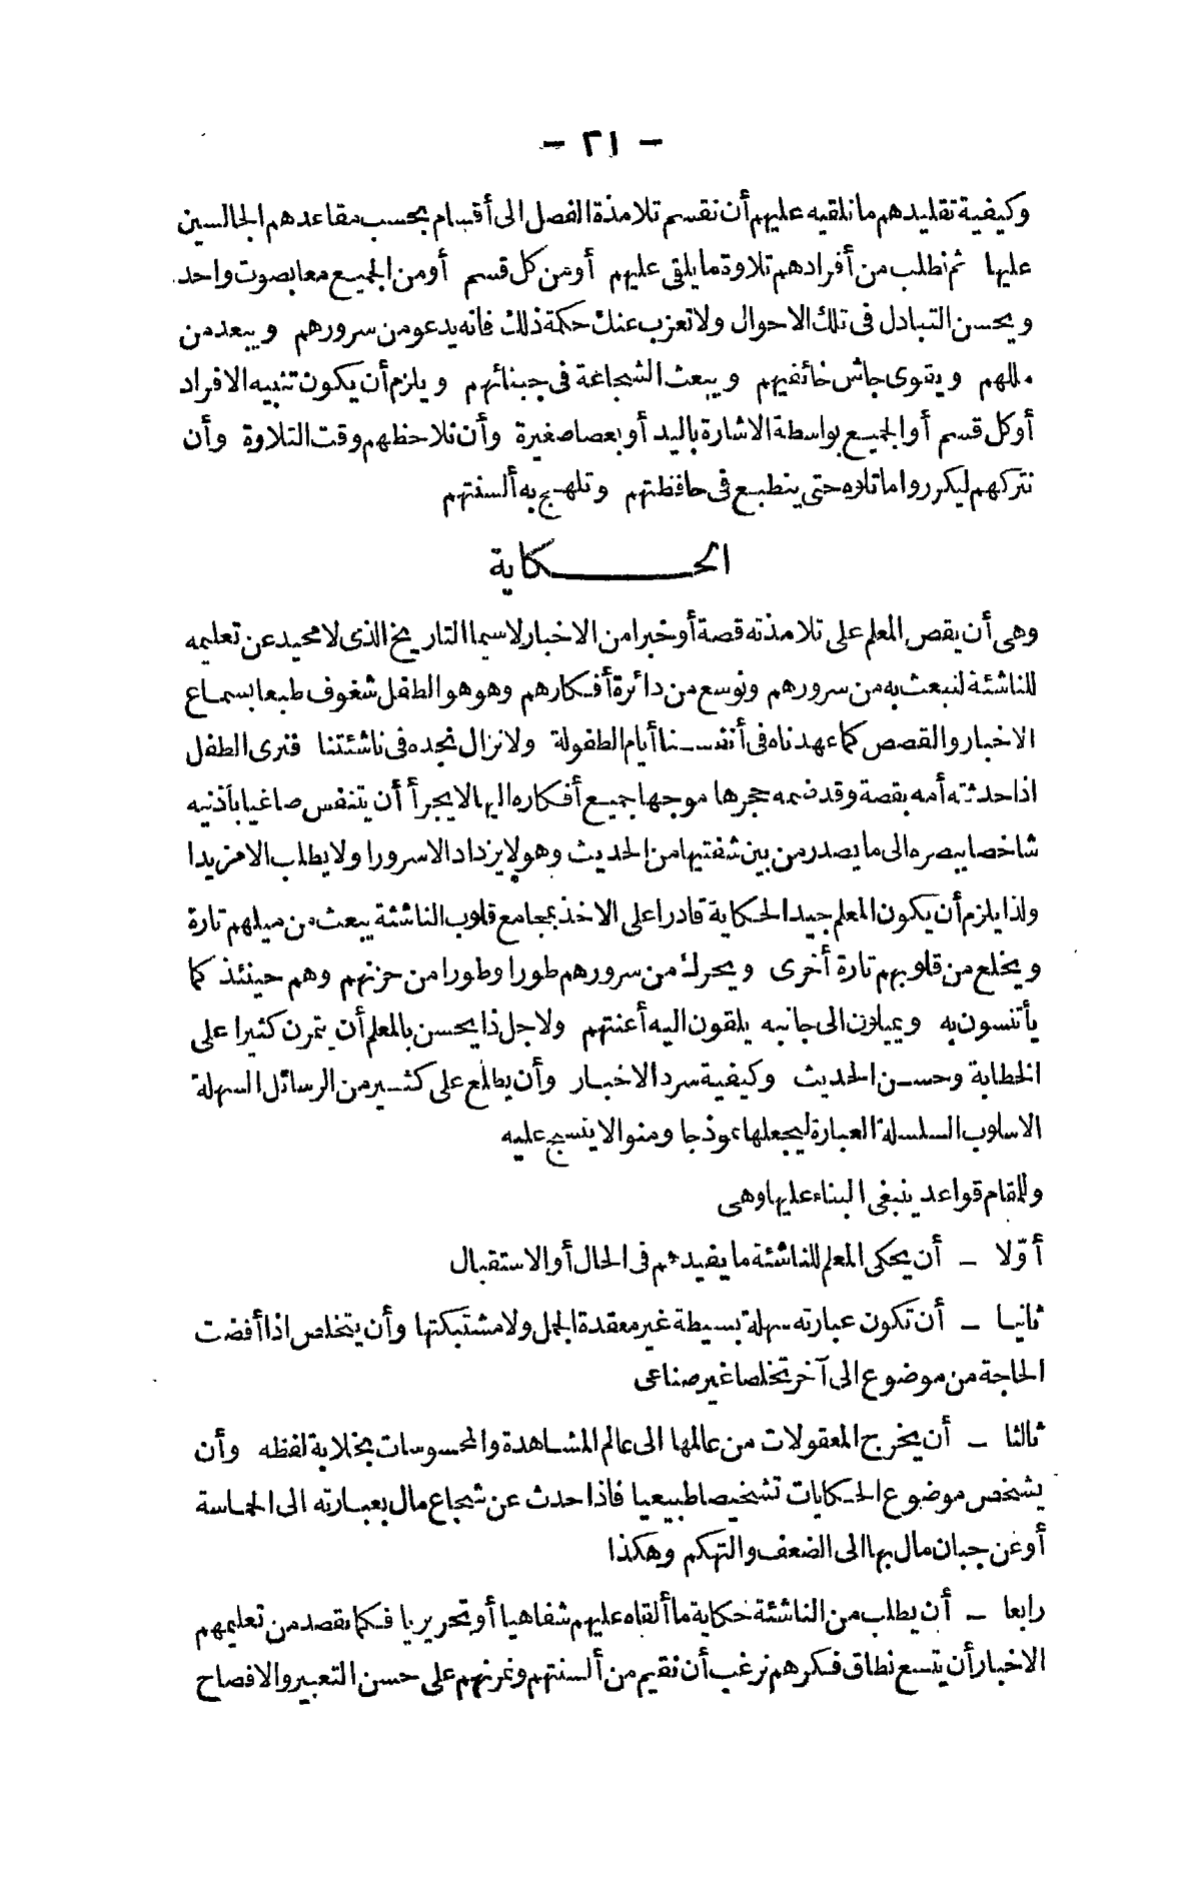 - ٢١ -
وكيفية تقليدهم ما نلقيه عليهم أن نقسم تلامذة الفصل الى أقسام بحسب مقاعدهم الجالسين
عليها ثم نطلب من أفرادهم تلاوة ما يلقى عليهم أو من كل قسم أو من الجميع معا بصوت واحد.
ويحسن التبادل فى تلك الاحوال ولا تعزب عنك حكمة ذلك فانه يدعو من سرورهم ويبعد من
مللهم ويقوى جاش خائفيهم ويبعث الشجاعة فى جبنائهم ويلزم أن يكون تنبيه الافراد
أو كل قسم أو الجميع بواسطة الاشارة باليد أو بعصا صغيرة وأن نلاحظهم وقت التلاوة وأن
نتركهم ليكرروا ما تلاه حتى ينطبع فى حافظتهم وتلهج به ألسنتهم
الحكاية
وهى أن يقص المعلم على تلامذته قصة أو خبرا من الاخبار لاسيما التاريخ الذى لا محيد عن تعليمه
للناشئة لنبعث به من سرورهم ونوسع من دائرة أفكارهم وهوهو الطفل شغوف طبعا بسماع
الاخبار والقصص كما عهدناه فى أنفسنا أيام الطفولة ولا نزال نجده فى ناشئتنا فنرى الطفل
اذا حدثته أمه بقصة وقد ضمه حجرها موجها جميع أفكاره اليها لا يجرأ أن يتنفس صاغيا بآذنيه
شاخصا ببصره الى ما يصدر من بين شفتيها من الحديث وهو لا يزداد الا سرورا ولا يطلب الا مزيدا
ولذا يلزم أن يكون المعلم جيد الحكاية قادرا على الاخذ بمجامع قلوب الناشئة يبعث من ميلهم تارة
ويخلع من قلوبهم تارة أخرى ويحرك من سرورهم طورا وطورا من حزنهم وهم حينئذ كما
يأتنسون به ويميلون الى جانبه يلقون اليه أعنتهم ولاجل ذا يحسن بالمعلم أن يتمرن كثيرا على
الخطابة وحسن الحديث وكيفية سرد الاخبار وأن يطلع على كثير من الرسائل السهلة
الاسلوب السلسلة العبارة ليجعلها نموذجا ومنوالا ينسج عليه
وللمقام قواعد ينبغى البناء عليها وهى
أوّلا - أن يحكى المعلم للناشئة ما يفيدهم فى الحال أو الاستقبال
ثانيا - أن تكون عبارته سهلة بسيطة غير معقدة الجمل ولا مشتبكتها وأن يتخلص اذا أفضت
الحاجة من موضوع الى آخر تخلصا غير صناعى
ثالثا - أن يخرج المعقولات من عالمها الى عالم المشاهدة والمحسوسات بخلابة لفظه وأن
يشخص موضوع الحكايات تشخيصا طبيعيا فاذا حدث عن شجاع مال بعبارته الى الحماسة
أو عن جبان مال بها الى الضعف والتهكم وهكذا
رابعا - أن يطلب من الناشئة حكاية ما ألقاه عليهم شفاهيا أو تحريريا فكما نقصد من تعليمهم
الاخبار أن يتسع نطاق فكرهم نرغب أن نقيم من ألسنتهم ونمرنهم على حسن التعبير والافصاح